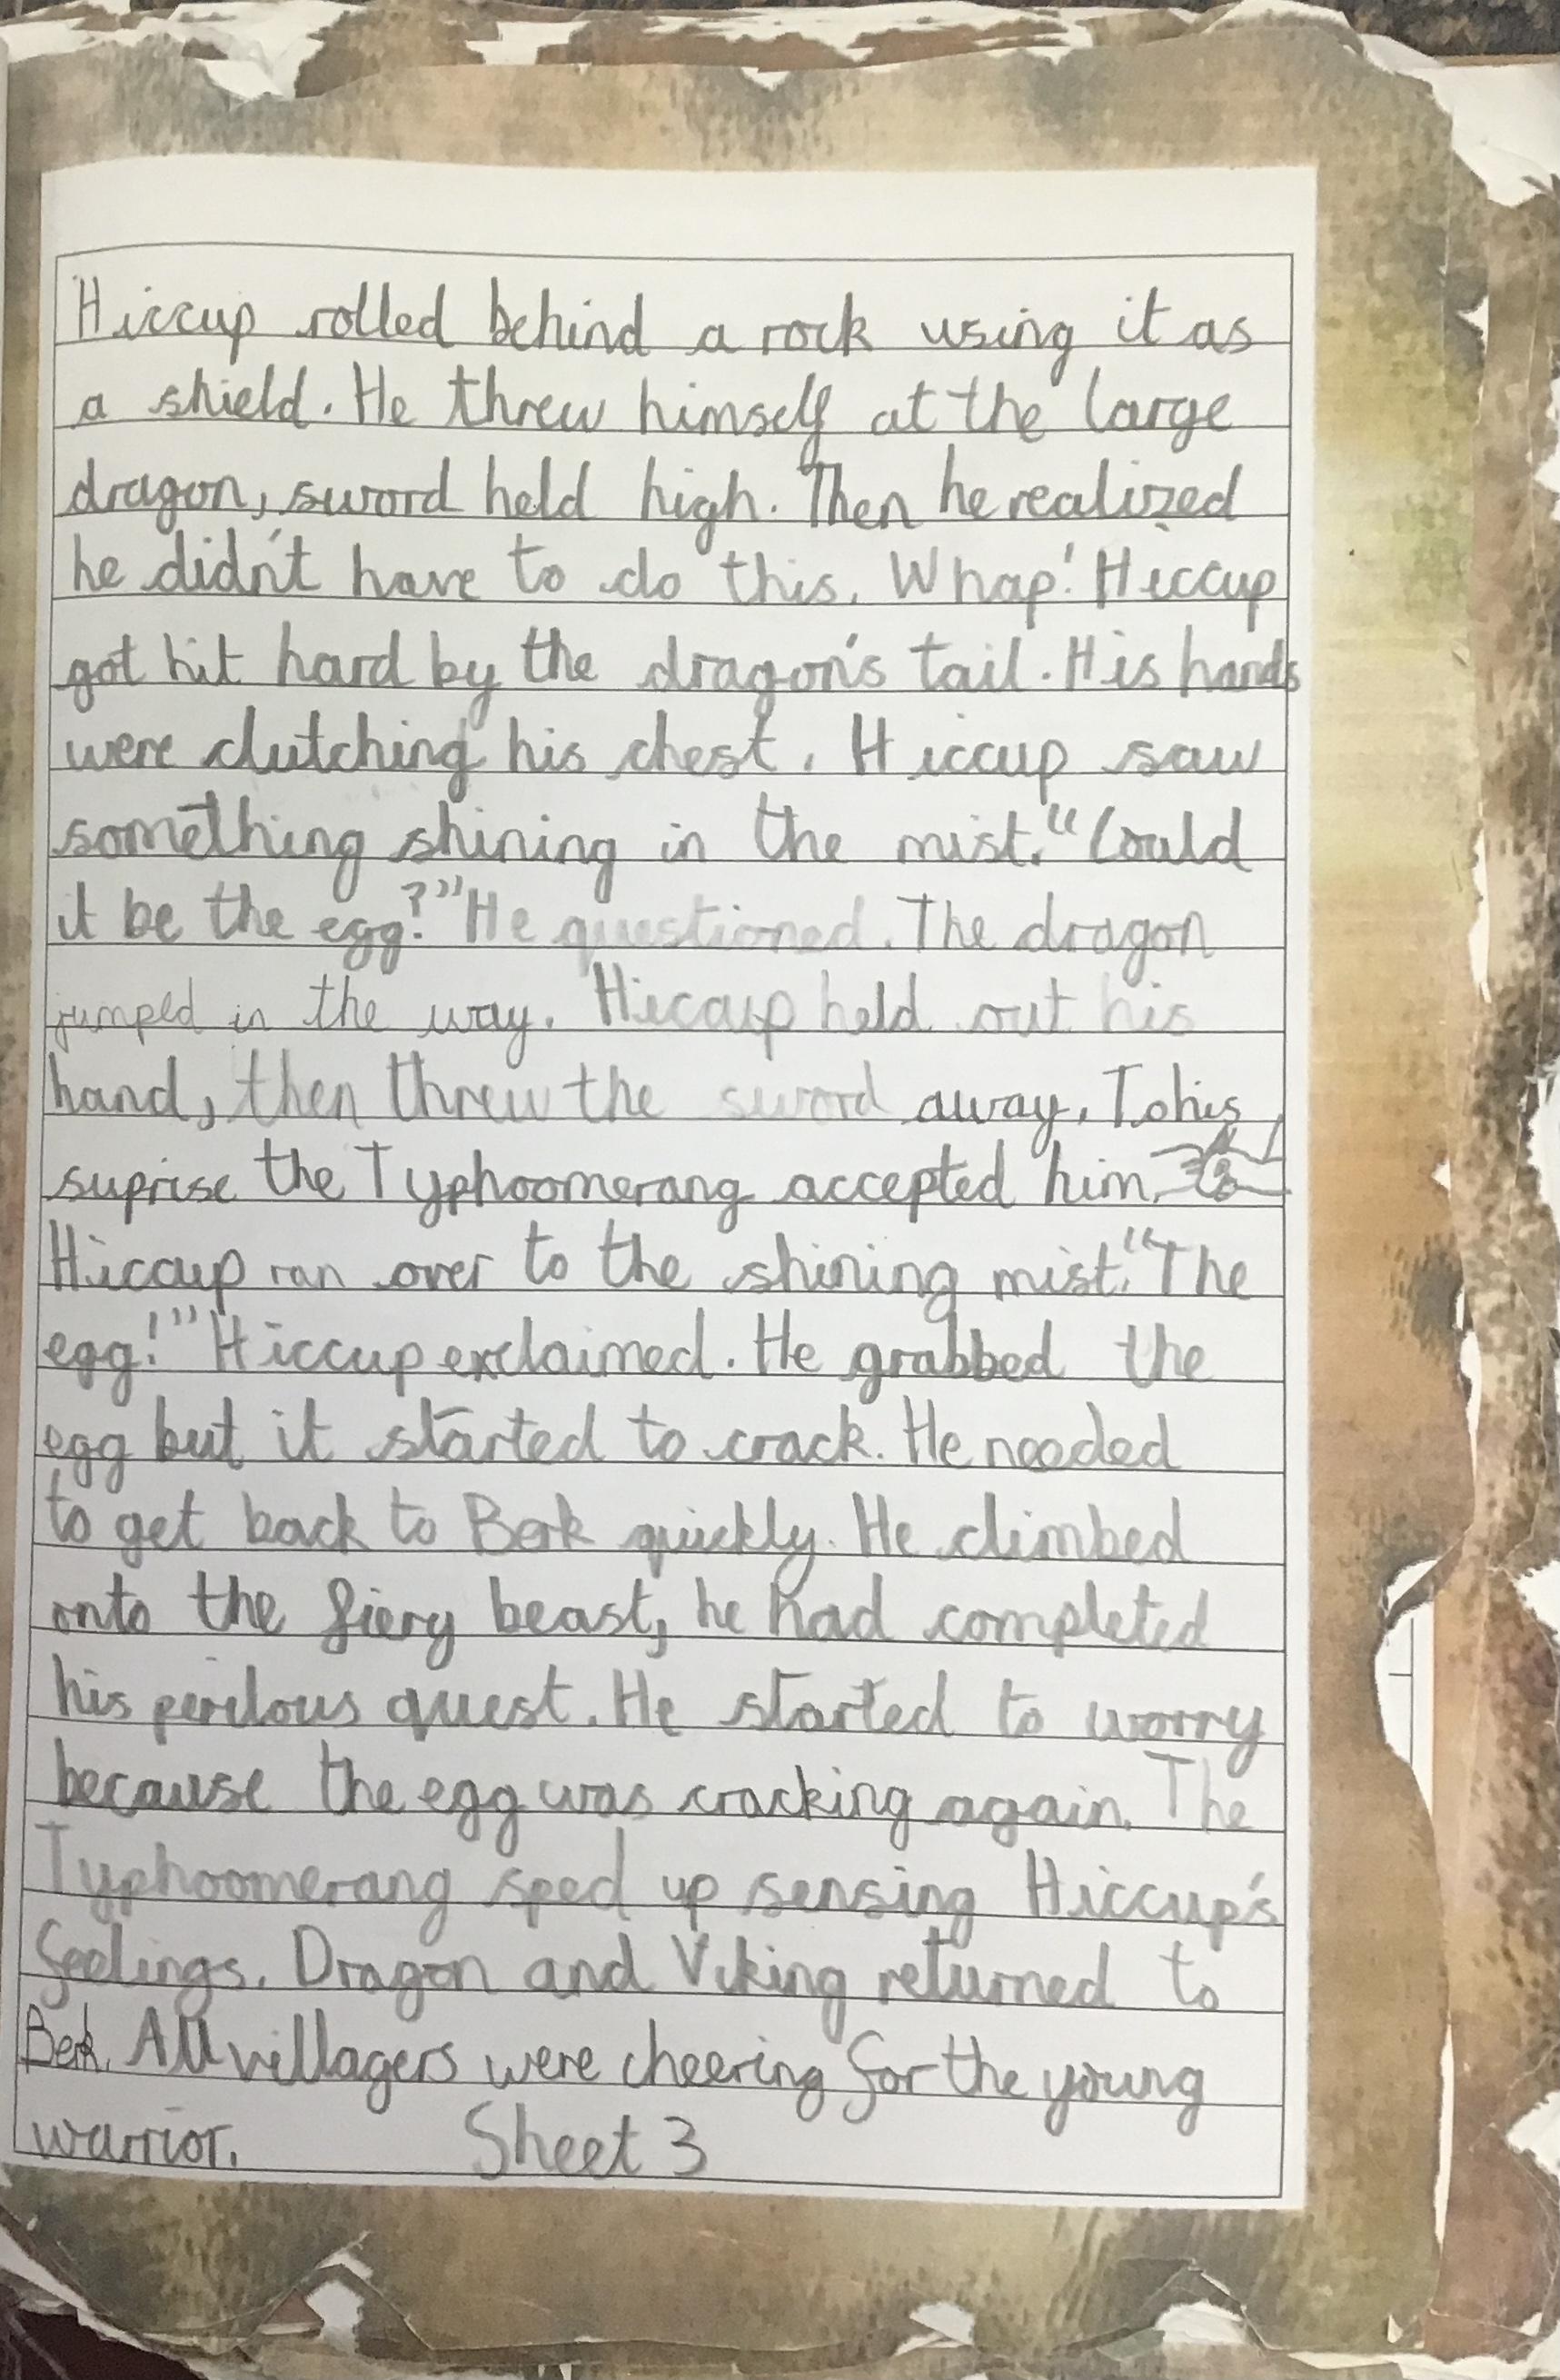 Hiccup rolled behind a rock using it as
a shield. He threw himself at the large
dragon, sword held high. Then he realized
he didn't have to do this. Whap! Hiccup
got hit hard by the dragon's tail. His hands
were clutching his chest. Hiccup saw
something shining in the mist. "Could
it be the egg?" He questioned. The dragon
jumped in the way. Hiccup held out his
hand, then threw the sword away. To his
suprise the Typhoomerang accepted him.
Hiccup ran over to the shining mist. "The
egg!" Hiccup exclaimed. He grabbed the
egg but it started to crack. He needed
to get back to Berk quickly. He climbed
onto the fiery beast, he had completed
his perilous quest. He started to worry
because the egg was cracking again. The
Typhoomerang sped up sensing Hiccup's
feelings. Dragon and Viking returned to
Berk. All villagers were cheering for the young
warrior. Sheet 3